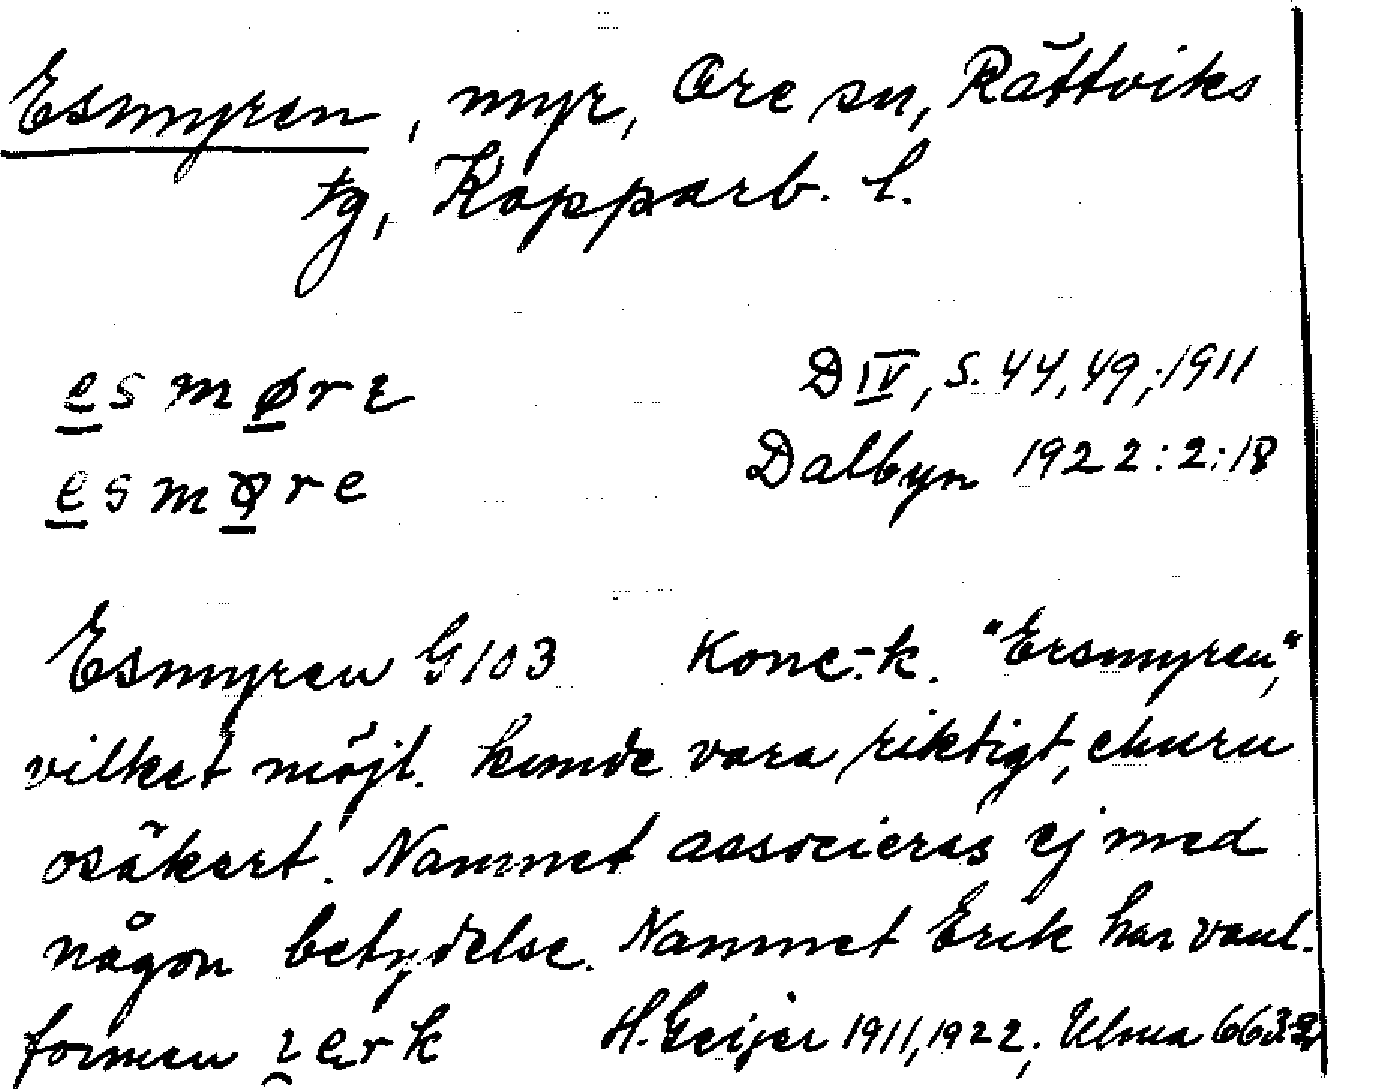 Esmyren, myr, Ore sn, Rättviks
tg, Kopparb. l.
esmøre D IV, s. 44, 49, 1911
esmøre Dalbyn 1922:2:18
Esmyren G 103 Konc.-k. "Ersmyren",
vilket möjl. kunde vara riktigt, ehuru
osäkert. Namnet associeras ej med
någon betydelse. Namnet Erik har vanl.
formen ɪerk H. Geijer 1911, 1922; Ulma 663:2